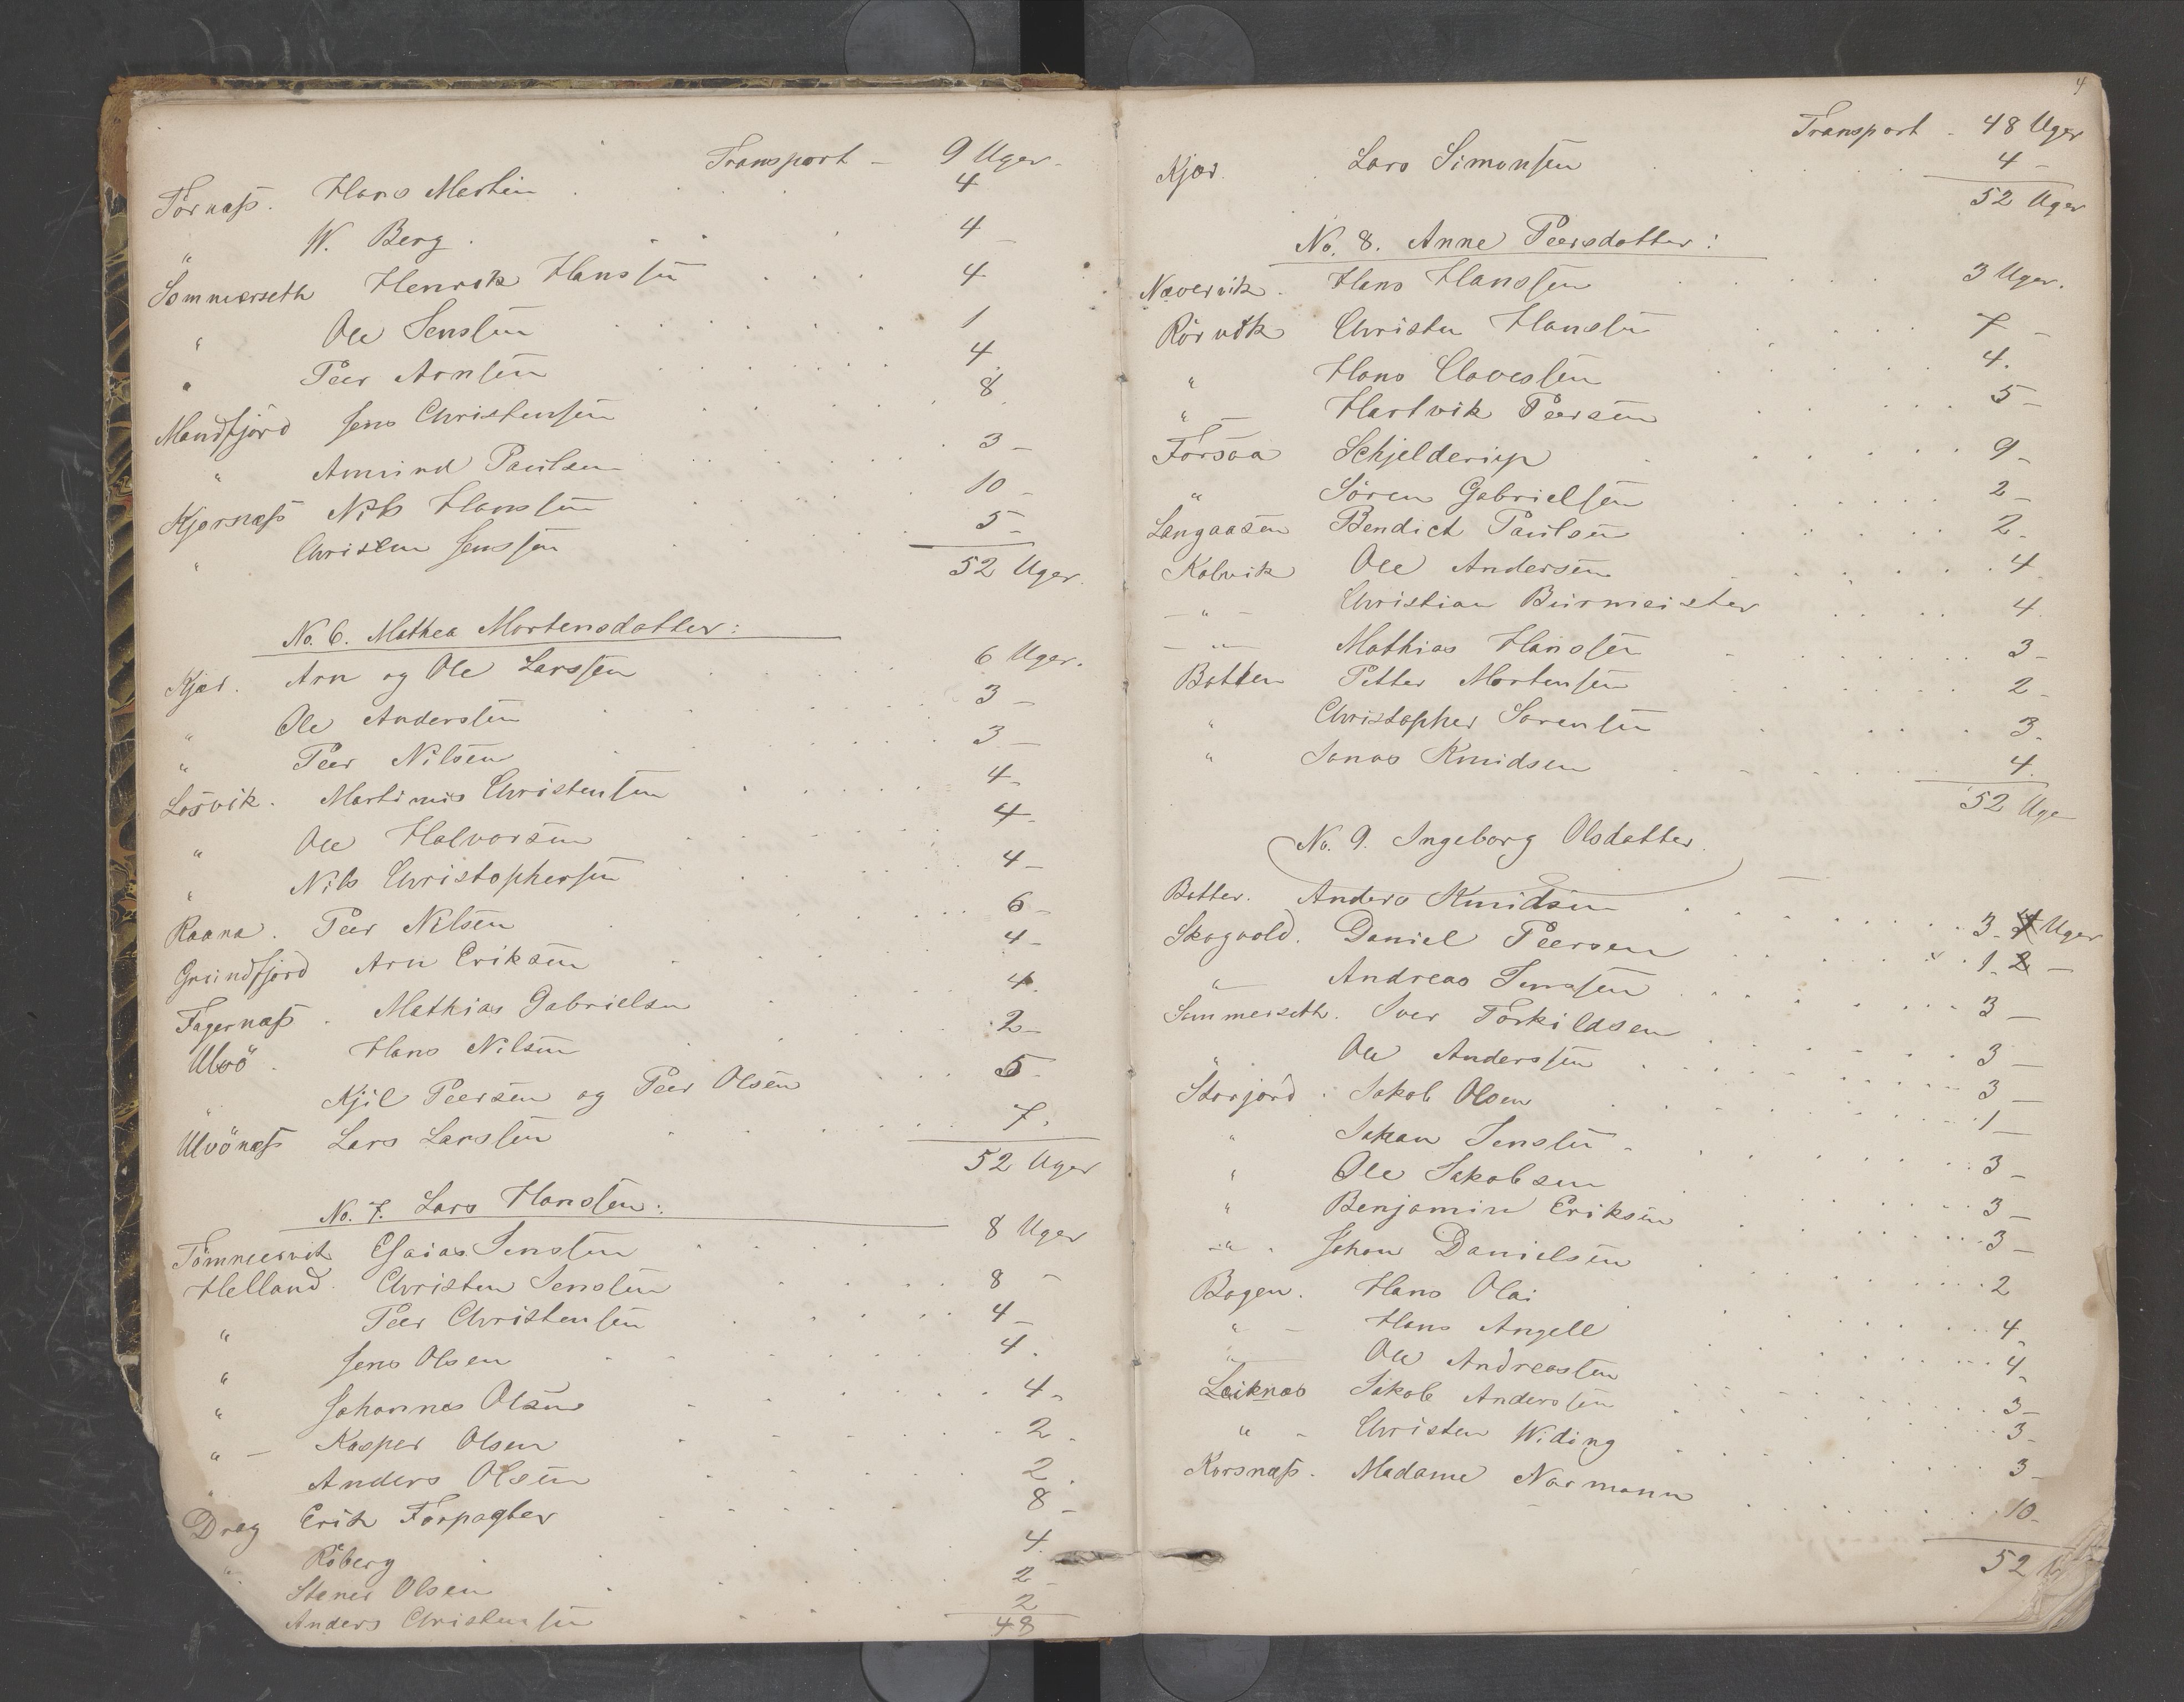 Transport - 9 Uger.
Törnæss. Hans Martin . . . 4
" W. Berg . . . . 4 -
Sommerseth Henrik Hanssen . . . 4
" Ole Jenssen . . . . . . 1
" Peer Arnssen . . . . . . 4
Mandfjord Jens Christensen . . . . . 8
" Amund Paulsen . . . . . . 3 -
Kjernæss Nils Hanssen . . . . . 10 -
" Christen Jenssen . . . . 5 -
52 Uger.
No. 6. Mathea Mortensdatter:
Kjær. Arn og Ole Larssen . . . . 6 Uger.
" Ole Anderssen . . . . . 3 -
" Peer Nilsen . . . . . 3 -
Losvik. Martinus Christensen . . . . . 4 -
" Ole Halvorsen . . . . . 4 -
" Nils Christophersen . . . . 4 -
Raana. Peer Nilsen . . . . 6 -
Grundfjord Arn Eriksen . . . . 4 -
Fagernæss . Mathias Gabrielsen . . . 4.
Ulvö . Hans Nilsen . . . . 2 -
" Kjil Peersen og Peer Olsen . . . 5 -
Ulvönæss Lars Larssen . . . . . 7.
52 Uger
No. 7. Lars Hanssen:
Tömmervik Esaias Jenssen . . . . 8 Uger
Helland. Christen Jenssen . . . . 8 -
" Peer Christensen . . . . . 4 -
" Jens Olsen . . . . . . 4.
" Johannes Olsen . . . . . 4 -
" - Kasper Olsen . . . . . 2 -
" Anders Olsen . . . . . 2.
Drag Erik Forpagter . . . . . 8 -
" Röberg . . . . 4.
Stener Olsen . . . . 2 -
Anders Christensen . . . . 2
48
4
Transport - 48 Uger
Kjær. Lars Simonsen . . . . 4 -
52 Uger
No. 8. Anne Peersdatter:
Nævervik. Hans Hanssen . . . . 3 Uger.
Rörvik Christen Hanssen . . . . 7 -
" Hans Clavessen . . . . 4.
" Hartvik Peersen . . . . 5 -
Forsaa Schjelderup . . . . . 9 -
" Sören Gabrielsen . . . . 2 -
Langaasen Bendict Paulsen . . . . 2 -
Kalvik Ole Andersen . . . . . 4
- " - Christian Burmeister . . . . 4
- " - Mathias Hanssen . . . . . 3 -
Botten Petter Mortensen . . . . 2 -
" Christopher Sörensen . . . . 3.
" Jonas Knudsen . . . . 4.
52 Uge
No. 9. Ingeborg Olsdatter.
Botten. Anders Knudsen . . . . 3 - 4 Uger
Skogvold. Daniel Peersen . . . . 1 - 2 -
" Andreas Jenssen . . . . . 3 -
Sommerseth. Iver Torkildsen . . . . 3 -
" Ole Anderssen . . . . . 3 -
Storjord . Jakob Olsen . . . . . 1 -
" Johan Jenssen . . . . . 3 -
" Ole Jakobsen . . . . . 3 -
" Benjamin Eriksen . . . . 3 -
- " - Johan Danielsen . . . . . 2
Bogen. Hans Olai . . . . . 4 -
" - Hans Angell . . . . . 4 -
" Ole Andreassen . . . . . 3 -
Leiknes Jakob Anderssen . . . . . 3 -
" - Christen Widing . . . . . 3 -
Korsnæss. Madame Normann . . . . . 10 -
52 U